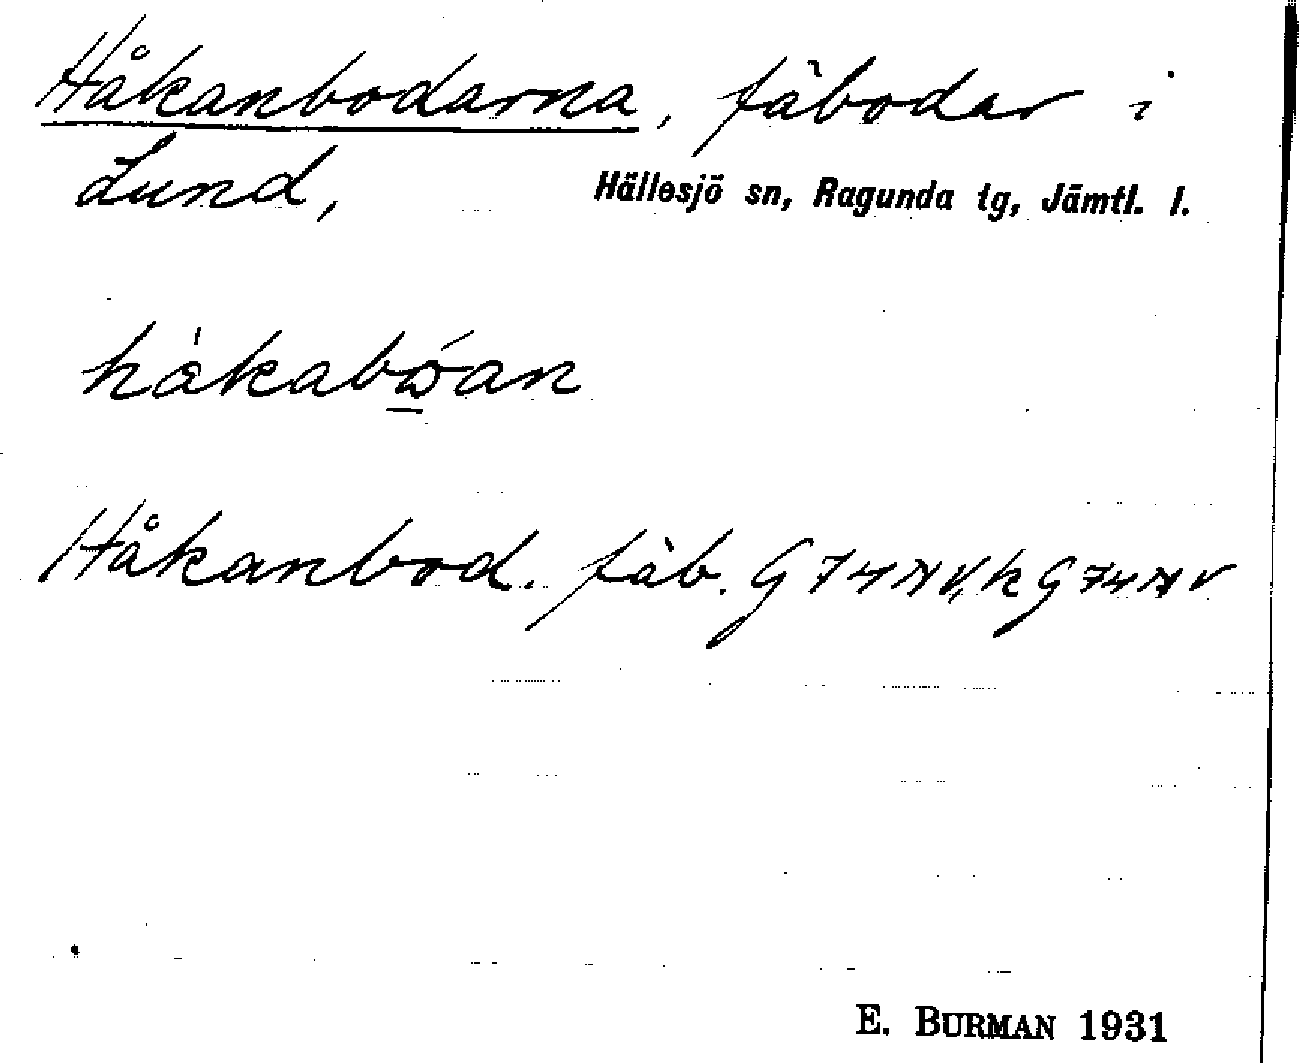 Håkanbodarna, fäbodar i
Lund, Hällesjö sn, Ragunda tg, Jämtl. l.
håkabǫ́an
Håkanbod. fäb. G 74 NV, k G 74 NV
E. BURMAN 1931